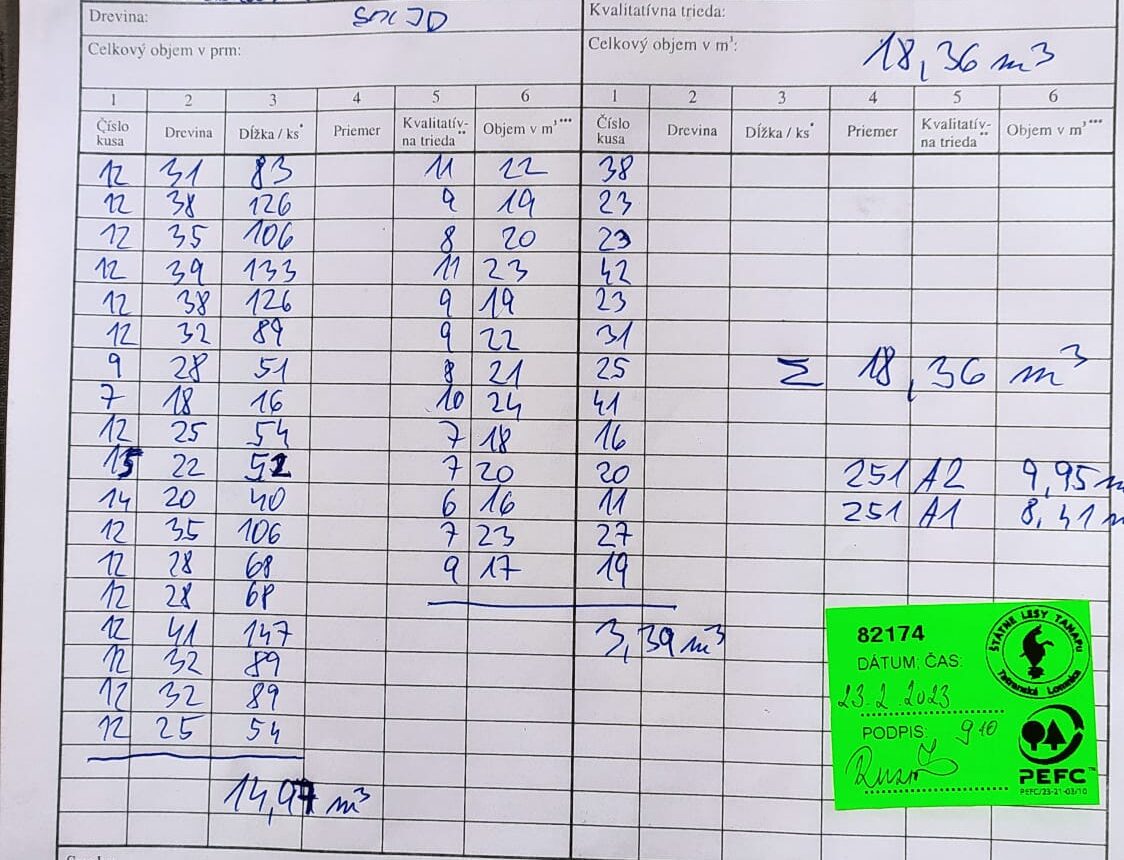 Drevina: smc JD Kvalitatívna trieda:
Celkový objem v prm: Celkový objem v m³: 18,36 m³
1 2 3 4 5 6 1 2 3 4 5 6
Číslo kusa Drevina Dĺžka / ks* Priemer Kvalitatív-na trieda** Objem v m³*** Číslo kusa Drevina Dĺžka / ks* Priemer Kvalitatív-na trieda** Objem v m³***
12 31 83 11 22 38
12 38 126 9 19 23
12 35 106 8 20 23
12 39 133 11 23 42
12 38 126 9 19 23
12 32 89 9 22 31
9 28 51 8 21 25 Σ 18,36 m³
7 18 16 10 24 41
12 25 54 7 18 16
15 22 52 7 20 20 251 A2 9,95 m
14 20 40 6 16 11 251 A1 8,41 m
12 35 106 7 23 27
12 28 68 9 17 19
12 28 68
12 41 147 3,39 m³
12 32 89
12 32 89
12 25 54
14,97 m³
82174
DÁTUM, ČAS:
23.2.2023
PODPIS: 9 10
ŠTÁTNE LESY TANAPU
Tatranská Lomnica
PEFC™
PEFC/23-21-03/10